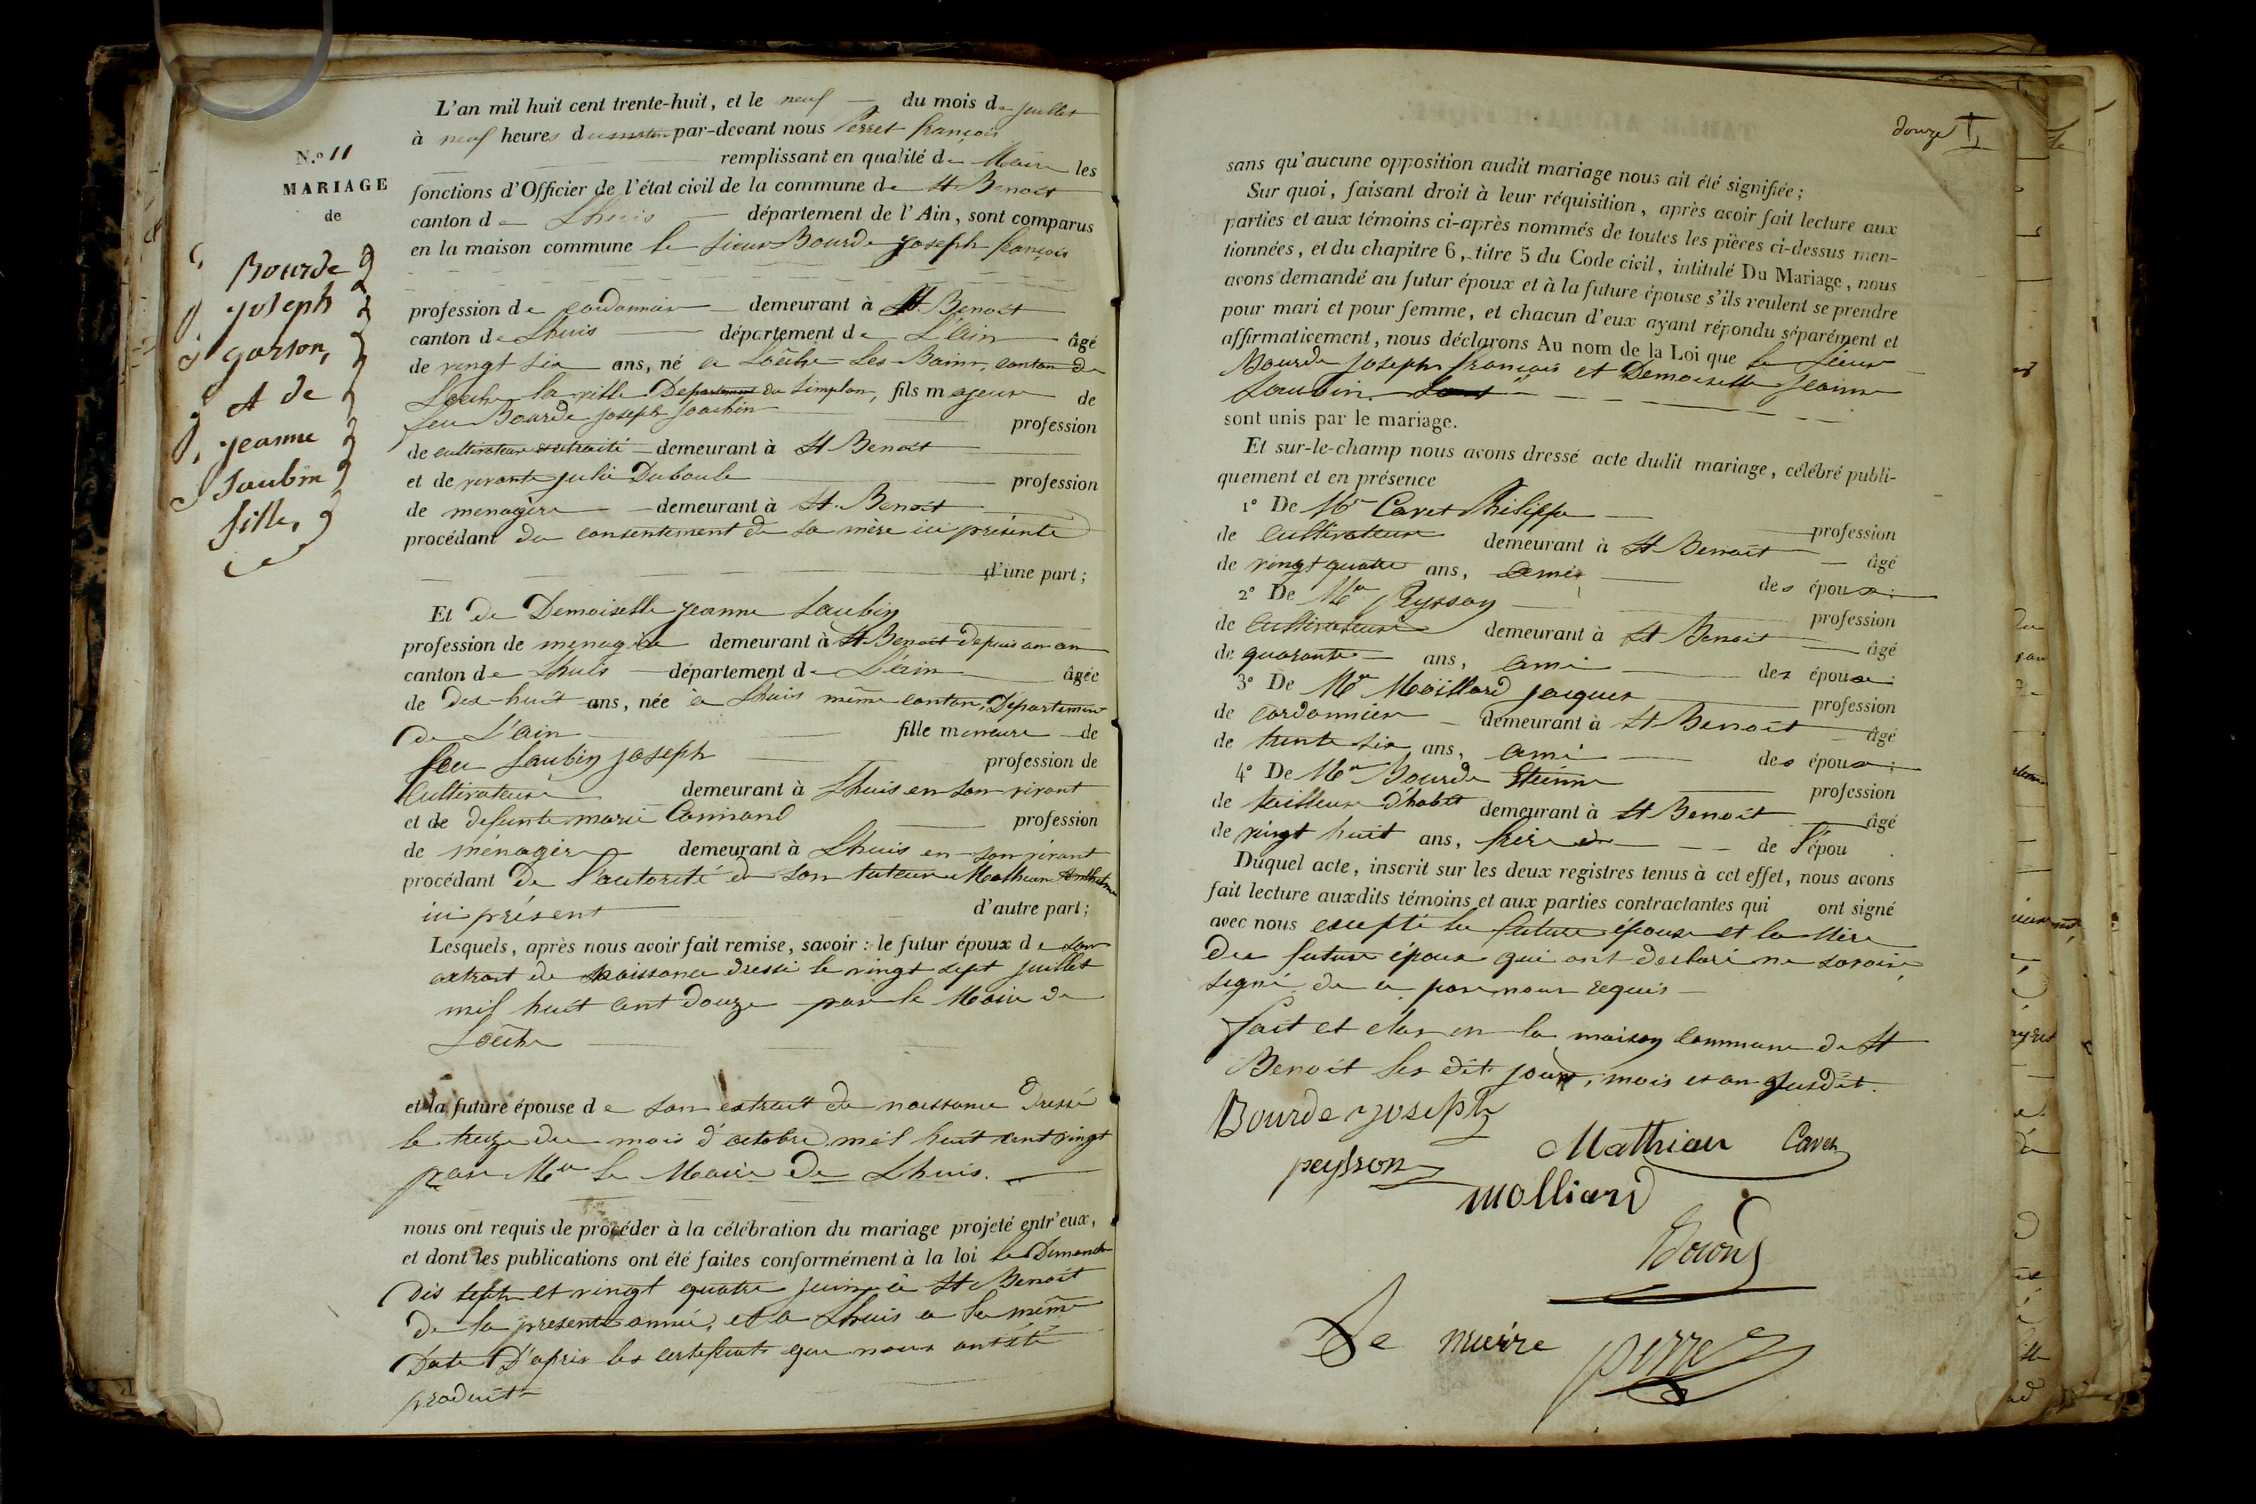 N.º 11
MARIAGE
de
Bourde
joseph
garson,
et de
jeanne
Saubin
fille,
L'an mil huit cent trente-huit, et le neuf du mois de juillet
à neuf heures du matin par-devant nous Perret françois
remplissant en qualité de Maire les
fonctions d'Officier de l'état civil de la commune de St Benoit
canton de Lhuis département de l'Ain, sont comparus
en la maison commune le sieur Bourde joseph françois
profession de cordonnier demeurant à St Benoit
canton de Lhuis département de L'ain âgé
de vingt six ans, né a Loëche Les Bains, canton de
Loëche la ville Departement du Simplon, fils majeur de
feu Bourde joseph joachin profession
de cultivateur demeurant à St Benoit
et de vivante julie Duboule profession
de menagère demeurant à St. Benoit
procédant du consentement de sa mère ici présente
d'une part;
Et de Demoiselle jeanne Saubin
profession de menagère demeurant à St Benoit depuis un an
canton de Lhuis département de L'ain âgée
de dix-huit ans, née à Lhuis même canton, Département
de L'ain fille meneure de
feu Saubin joseph profession de
Cultivateur demeurant à Lhuis en son vivant
et de defunte marie profession
de ménagère demeurant à Lhuis en son vivant
procédant de l'autorité de son tuteur Mathieu Anthelme
ici présent d'autre part;
Lesquels, après nous avoir fait remise, savoir: le futur époux de son
extrait de naissance dressé le vingt sept juillet
mil huit cent douze par le Maire de
Loëche
et la future épouse de son extrait de naissance dressé
le treize du mois d'octobre mil huit cent vingt
par Mr le Maire de Lhuis.
nous ont requis de procéder à la célébration du mariage projeté entr'eux,
et dont les publications ont été faites conformément à la loi le Dimanche
dix sept et vingt quatre juin à St Benoit
de la présente année, et a Lhuis a la même
Date D'après les certificats que nous ont été
produits
douze
sans qu'aucune opposition audit mariage nous ait été signifiée;
Sur quoi, faisant droit à leur réquisition, après avoir fait lecture aux
parties et aux témoins ci-après nommés de toutes les pièces ci-dessus men-
tionnées, et du chapitre 6, titre 5 du Code civil, intitulé Du Mariage, nous
avons demandé au futur époux et à la future épouse s'ils veulent se prendre
pour mari et pour femme, et chacun d'eux ayant répondu séparément et
affirmativement, nous déclarons Au nom de la Loi que le sieur
Bourde joseph françois et Demoiselle jeanne
Saubin
sont unis par le mariage.
Et sur-le-champ nous avons dressé acte dudit mariage, célébré publi-
quement et en présence
1º De Mr Cavet Philippe profession
de Cultivateur demeurant à St Benoit âgé
de vingt quatre ans, ami des époux;
2º De Mr Peysson profession
de Cultivateur demeurant à St Benoit âgé
de quarante ans, ami des époux
3º De Mr Moillard jacques profession
de cordonnier demeurant à St Benoit âgé
de trente six ans, ami des époux;
4º De Mr Bourde Etienne profession
de tailleur d'habit demeurant à St Benoit âgé
de vingt huit ans, frère de l'épou
Duquel acte, inscrit sur les deux registres tenus à cet effet, nous avons
fait lecture auxdits témoins et aux parties contractantes qui ont signé
avec nous excepté la future épouse et la Mère
du future époux qui ont declaré ne savoir
signé de ce par nous requis
fait et clos en la maison commune de St
Benoit les dit jour, mois et an susdit.
Bourde joseph
Mathieu Cavet
peysson
molliard
Le maire perret